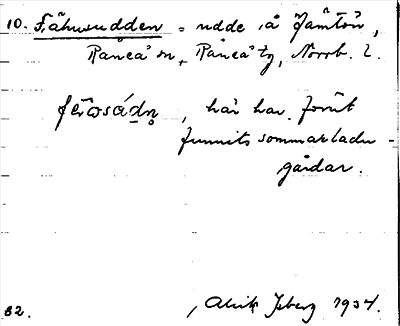 10. Fähusudden = udde i å Jämtön,
Råneå sn, Råneå tg, Norrb. l.
här har förut
funnits sommarladu-
gårdar.
82. , Alrik Isberg 1937.